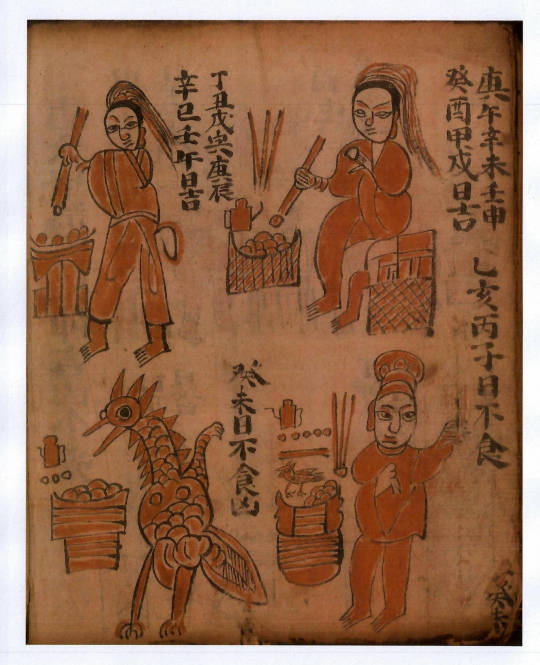 庚午辛未壬申
癸酉甲戌日吉
乙亥丙子日不食
丁丑戊寅庚辰
辛巳壬午日吉
癸未日不食凶
癸未